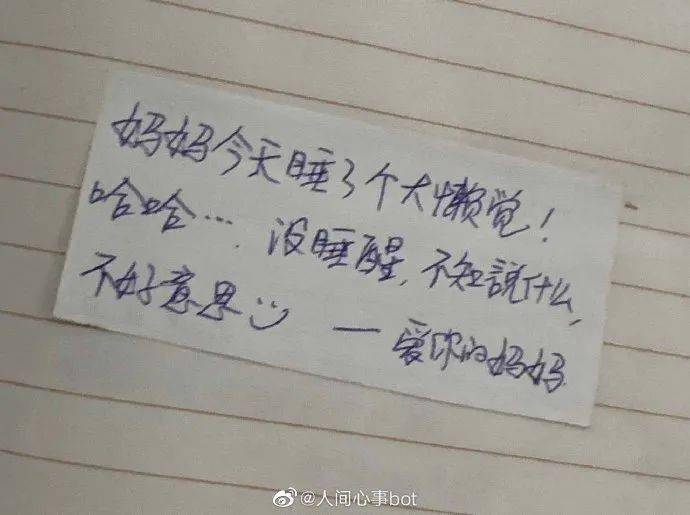 妈妈今天睡了个大懒觉！
哈哈… 没睡醒，不知說什么，
不好意思 — 爱你的妈妈
@人间心事bot